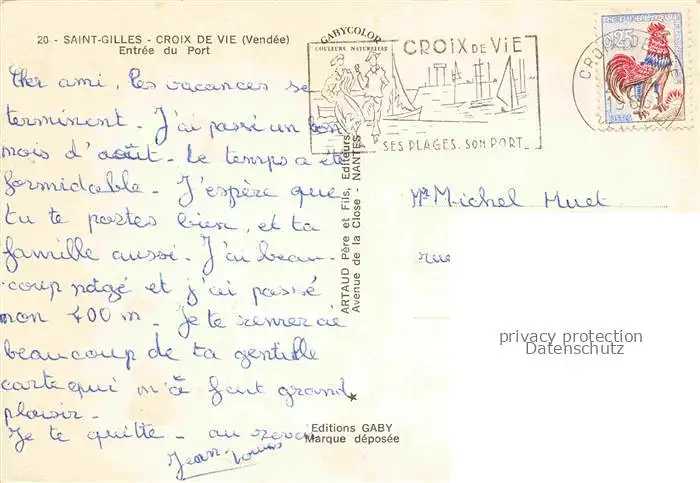 20 - SAINT-GILLES - CROIX DE VIE (Vendée)
Entrée du Port
Cher ami, les vacances se
terminent. J'ai passé un bon
mois d'août. Le temps a été
formidable. J'espère que
tu te portes bien, et ta
famille aussi. J'ai beau-
coup nagé et j'ai passé
mon 400 m. Je te remercie
beaucoup de ta gentille
carte qui m'a fait grand
plaisir.
Je te quitte - au revoir
Jean-Louis
GABYCOLOR
COULEURS NATURELLES
CROIX DE VIE
SES PLAGES. SON PORT
ARTAUD Père et Fils, Editeurs
Avenue de la Close - NANTES
Editions GABY
Marque déposée
0,25
CROIX DE
Mr Michel Huet
rue
privacy protection
Datenschutz